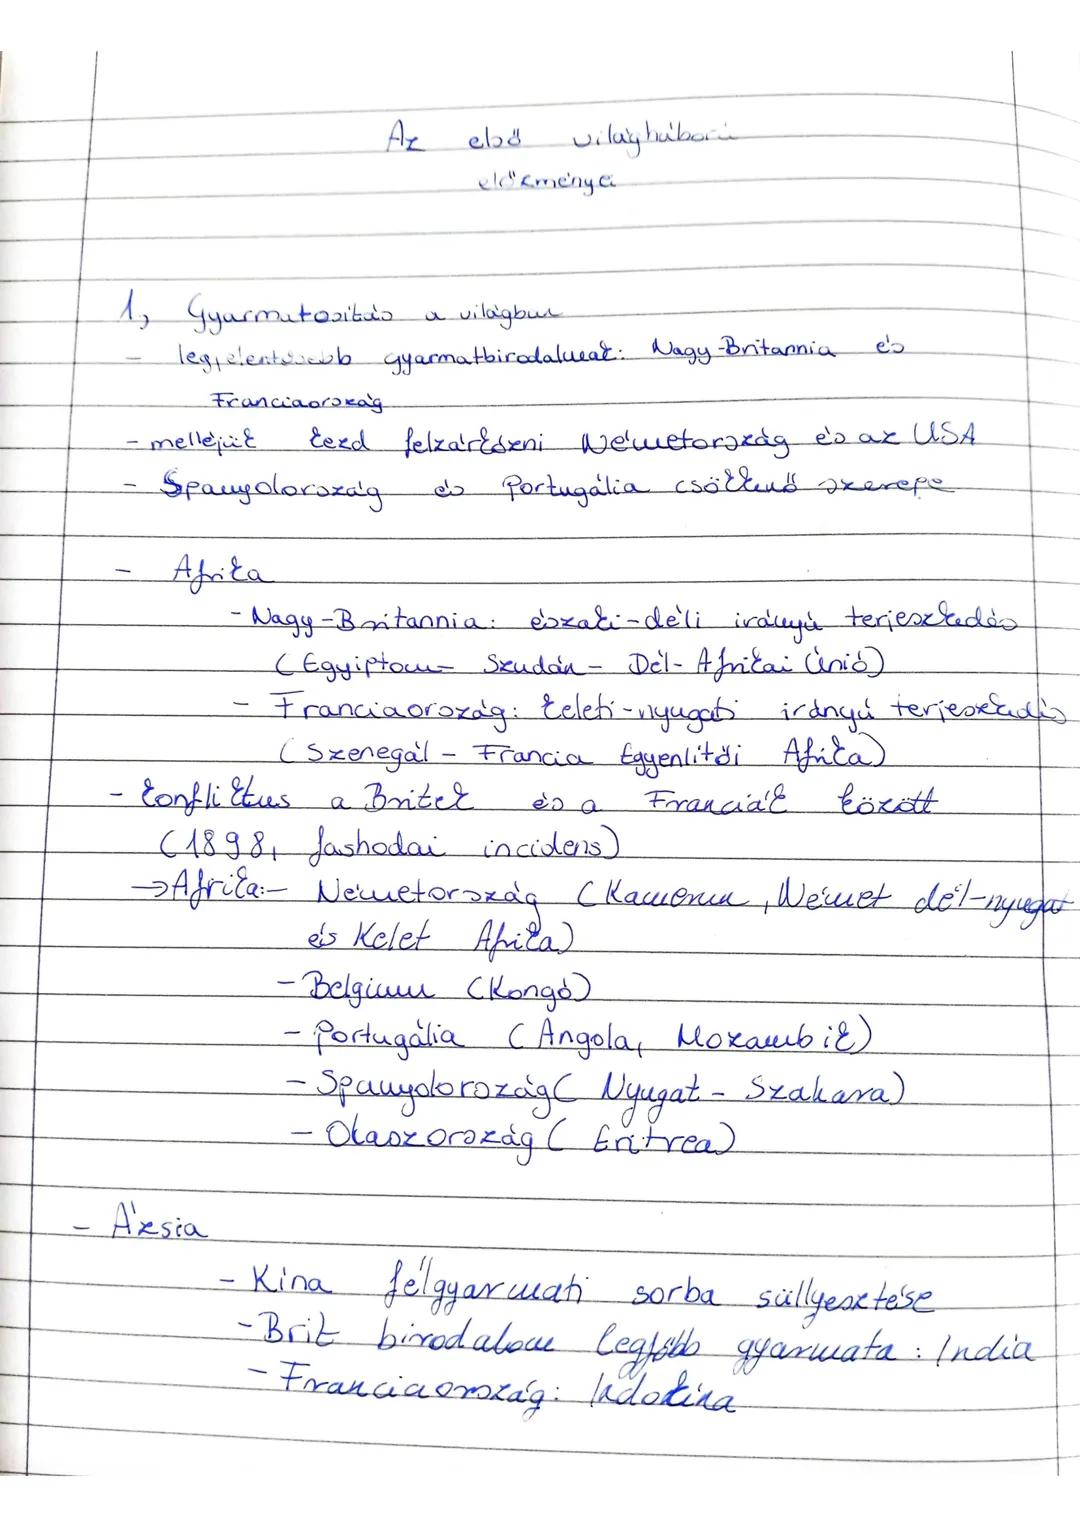 Az első világháború
előzményei
1, Gyarmatosítás a világban
- legjelentősebb gyarmatbirodalmak: Nagy-Britannia és
Franciaország
- melléjük kezd felzárkózni Németország és az USA
- Spanyolország és Portugália csökkenő szerepe
- Afrika
- Nagy-Britannia: északi-déli irányú terjeszkedés
(Egyiptom - Szudán - Dél-Afrikai Unió)
- Franciaország: keleti-nyugati irányú terjeszkedés
(Szenegál - Francia Egyenlítői Afrika)
- konfliktus a Britek és a Franciák között
(1898, fashodai incidens)
→ Afrika: - Németország (Kamerun, Német dél-nyugat
és Kelet Afrika)
- Belgium (Kongó)
- Portugália (Angola, Mozambik)
- Spanyolország (Nyugat - Szahara)
- Olaszország (Eritrea)
- Ázsia
- Kína félgyarmati sorba süllyesztése
- Brit birodalom legfőbb gyarmata: India
- Franciaország: Indokína